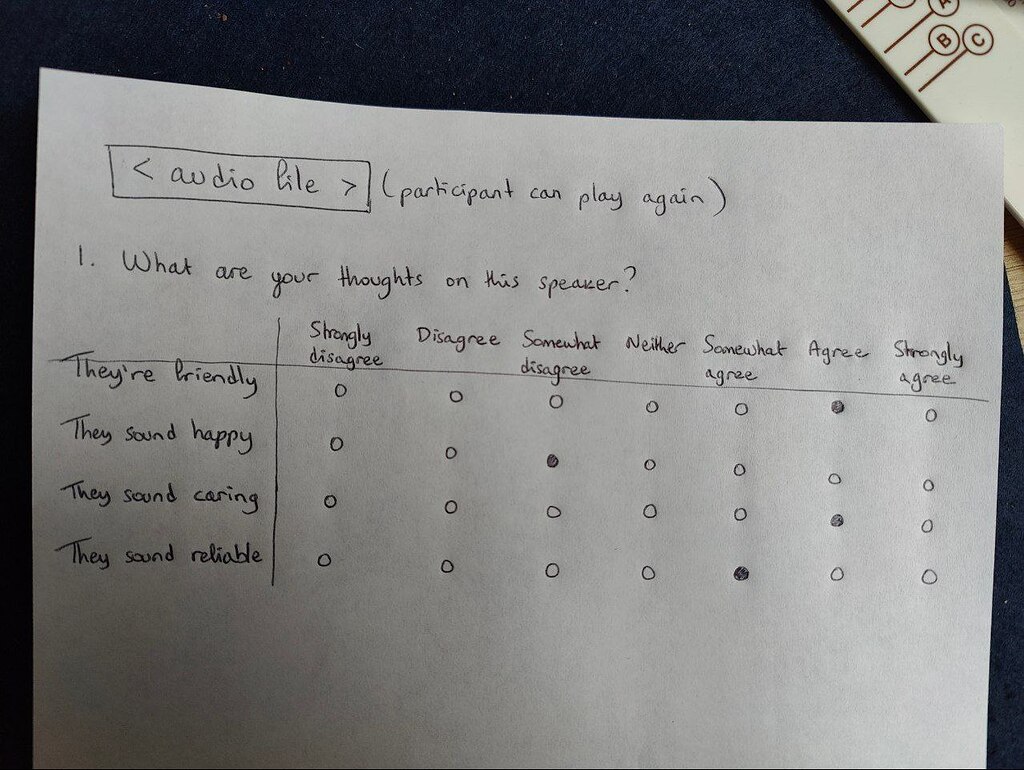 B C
< audio file > (participant can play again)
1. What are your thoughts on this speaker?
Strongly disagree Disagree Somewhat disagree Neither Somewhat agree Agree Strongly agree
They're friendly
They sound happy
They sound caring
They sound reliable